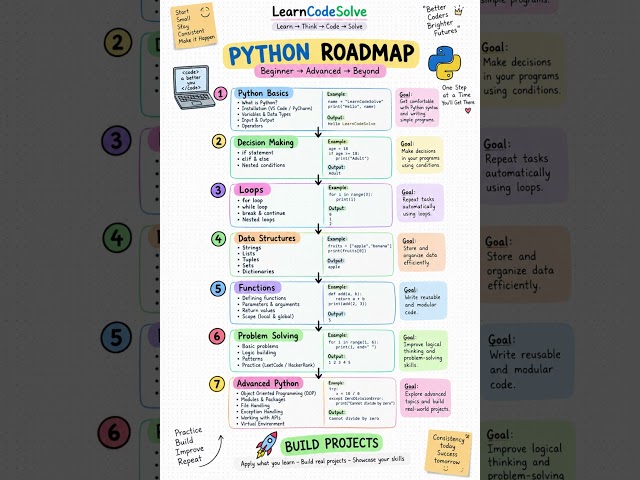 LearnCodeSolve
Learn → Think → Code → Solve
Start
Small
Stay
Consistent
Make it Happen
"Better
Coders
Brighter
Futures"
PYTHON ROADMAP
Beginner → Advanced → Beyond
<code>
a better
you
</code>
One Step
at a Time
You'll Get There
1
Python Basics
• What is Python?
• Installation (VS Code / PyCharm)
• Variables & Data Types
• Input & Output
• Operators
Example:
name = "LearnCodeSolve"
print("Hello", name)
Output:
Hello LearnCodeSolve
Goal:
Get comfortable
with Python syntax
and writing
simple programs.
2
Decision Making
• if statement
• elif & else
• Nested conditions
Example:
age = 18
if age >= 18:
print("Adult")
Output:
Adult
Goal:
Make decisions
in your programs
using conditions.
3
Loops
• for loop
• while loop
• break & continue
• Nested loops
Example:
for i in range(3):
print(i)
Output:
0
1
2
Goal:
Repeat tasks
automatically
using loops.
4
Data Structures
• Strings
• Lists
• Tuples
• Sets
• Dictionaries
Example:
fruits = ["apple","banana"]
print(fruits[0])
Output:
apple
Goal:
Store and
organize data
efficiently.
5
Functions
• Defining functions
• Parameters & arguments
• Return values
• Scope (local & global)
Example:
def add(a, b):
return a + b
print(add(2, 3))
Output:
5
Goal:
Write reusable
and modular
code.
6
Problem Solving
• Basic problems
• Logic building
• Patterns
• Practice (LeetCode / HackerRank)
Example:
for i in range(1, 6):
print(i, end=" ")
Output:
1 2 3 4 5
Goal:
Improve logical
thinking and
problem-solving
skills.
7
Advanced Python
• Object Oriented Programming (OOP)
• Modules & Packages
• File Handling
• Exception Handling
• Working with APIs
• Virtual Environment
Example:
try:
x = 10 / 0
except ZeroDivisionError:
print("Cannot divide by zero")
Output:
Cannot divide by zero
Goal:
Explore advanced
topics and build
real-world projects.
Practice
Build
Improve
Repeat
BUILD PROJECTS
Apply what you learn – Build real projects – Showcase your skills
Consistency
today
Success
tomorrow
2
3
4
5
6
Goal:
Make decisions
in your programs
using conditions.
Goal:
Repeat tasks
automatically
using loops.
Goal:
Store and
organize data
efficiently.
Goal:
Write reusable
and modular
code.
Goal:
Improve logical
thinking and
problem-solving